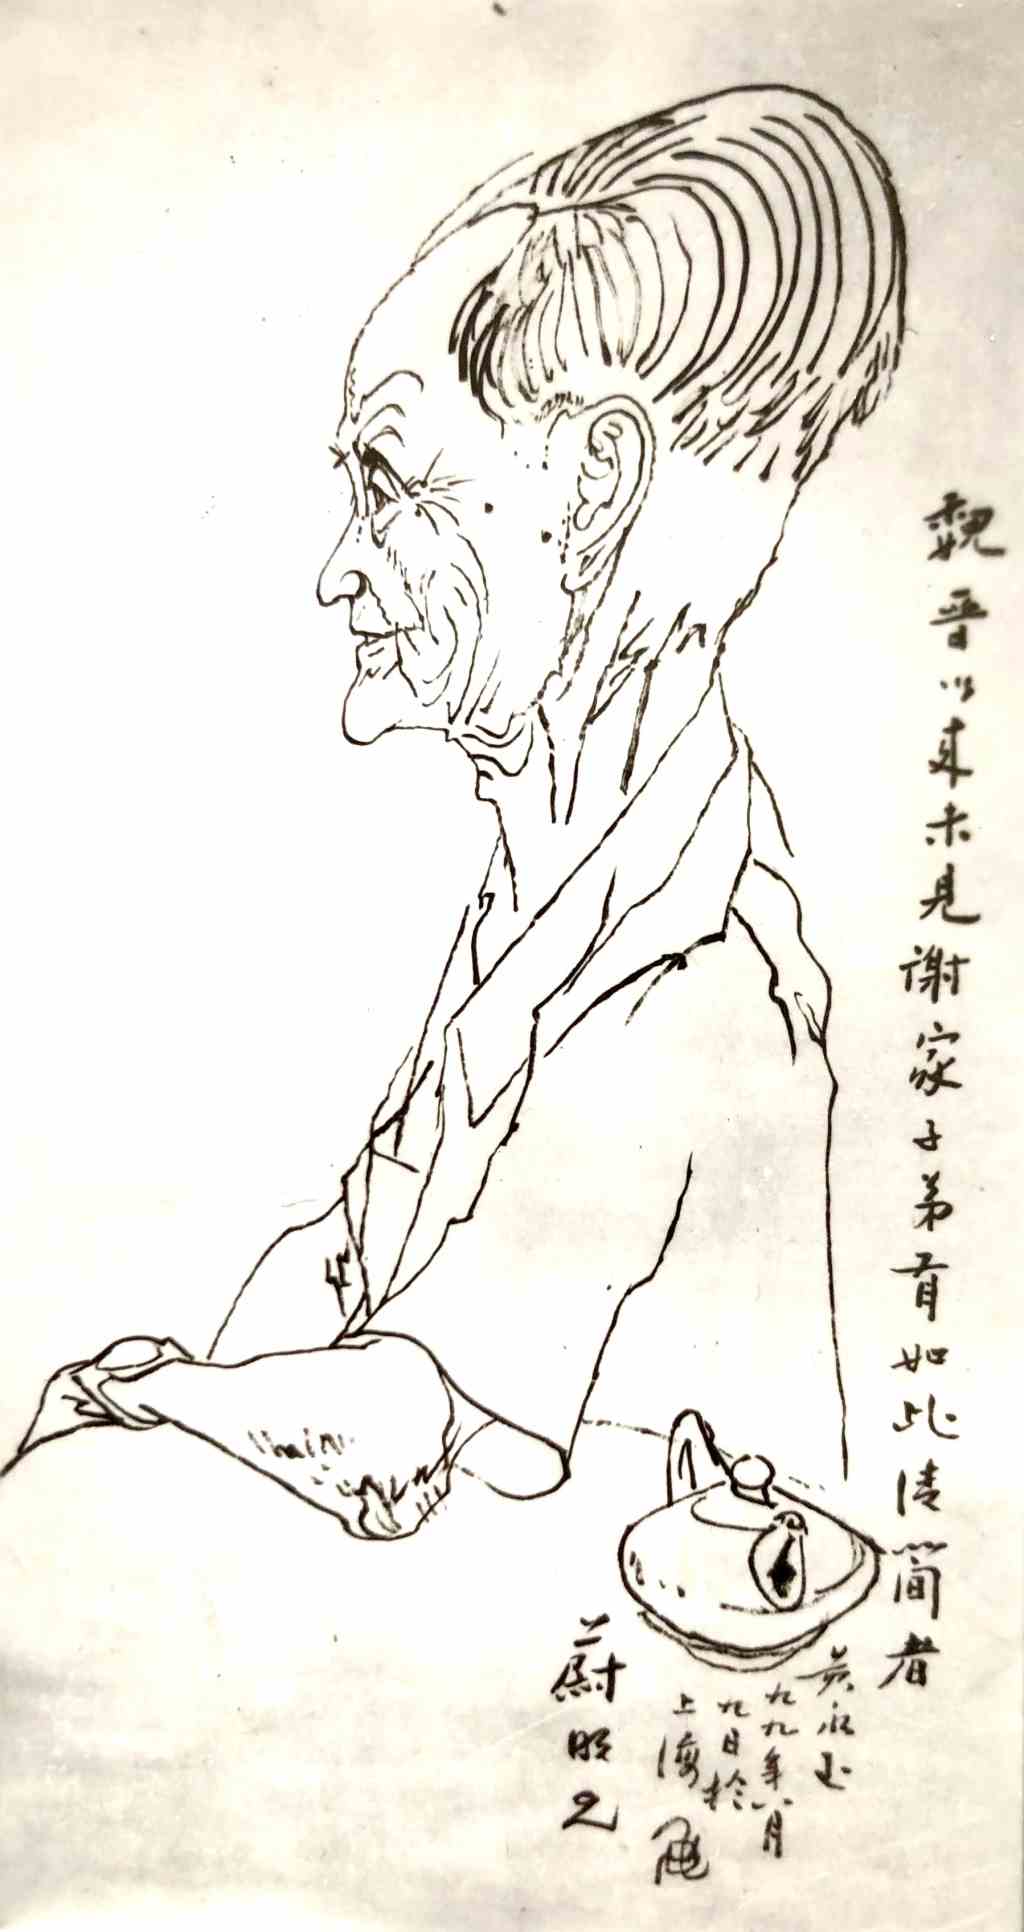 魏晋以来未见谢家子弟有如此清简者
黄永玉
九九年八月
九日於
上海
蔚明兄